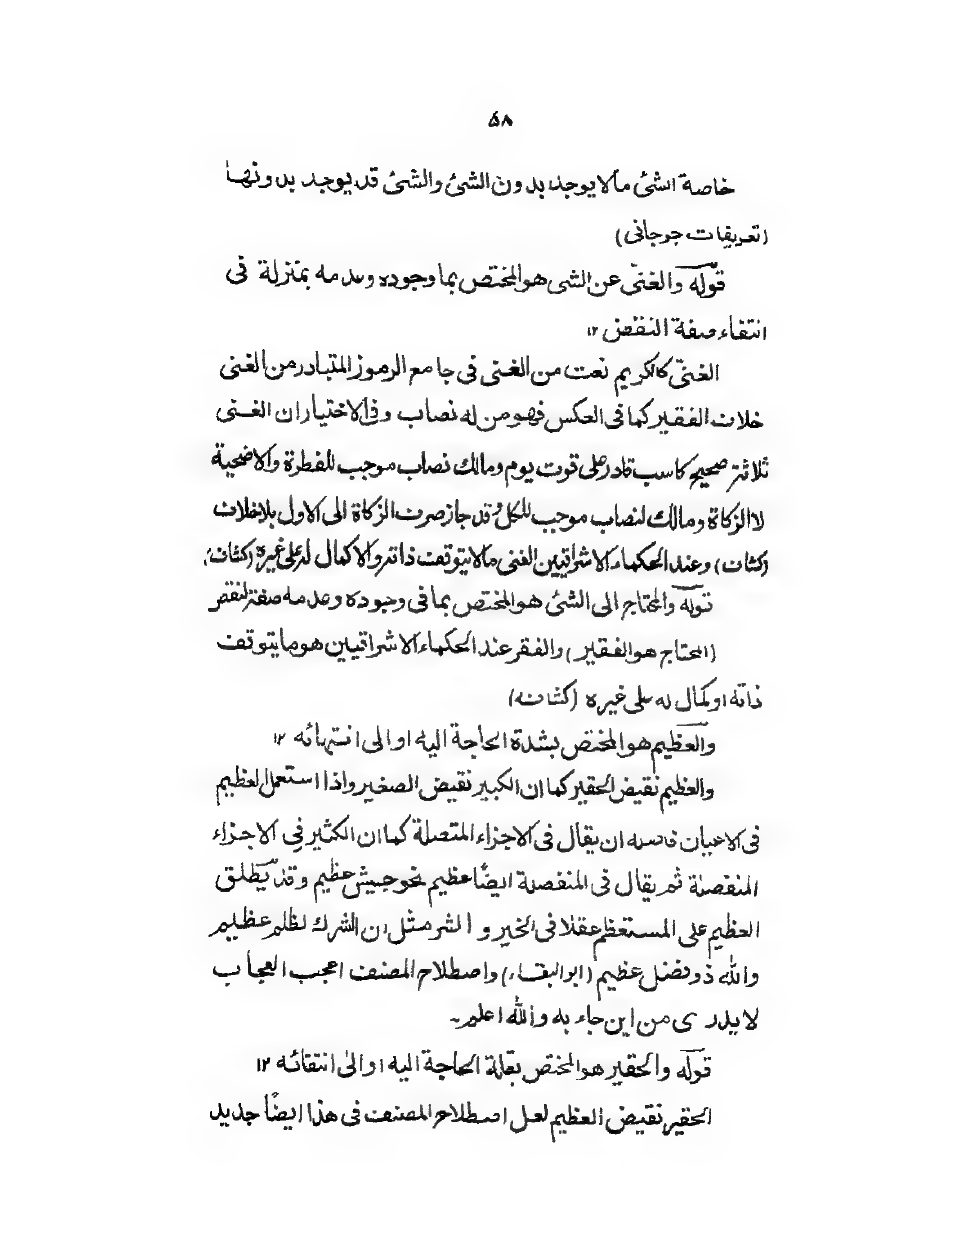 ۵۸
خاصة الشئ مالا يوجد بدون الشئ والشئ قد يوجد بدونها
(تعريفات جرجانى)
قوله والغنى عن الشى هو المختص بما وجوده وعدمه بمنزلة فى
انتفاء صفة النقص ۱۲
الغنىّ كالكريم نعت من الغنى فى جامع الرموز المتبادر من الغنى
خلاف الفقير كما فى العكس فهو من له نصاب وفى الاختيار ان الغنى
ثلاثة صحيح كاسب قادر على قوت يوم ومالك نصاب موجب للفطرة والاضحية
لا الزكاة ومالك لنصاب موجب للكل وقد جاز صرف الزكاة الى الاول بلا خلاف
(كشاف) وعند الحكماء الاشراقيين الغنى مالا يتوقف ذاته والاكمال له على غيره (كشاف)
قوله والمحتاج الى الشئ هو المختص بما فى وجوده وعدمه صفة لنقص
(المحتاج هو الفقير) والفقر عند الحكماء الاشراقيين هو ما يتوقف
ذاته او كمال له على غيره (كشاف)
والعظيم هو المختص بشدة الحاجة اليه او الى انتهائه ۱۲
والعظيم نقيض الحقير كما ان الكبير نقيض الصغير واذا استعمل لعظيم
فى الاعيان فاصله ان يقال فى الاجزاء المتصلة كما ان الكثير فى الاجزاء
المنفصلة ثم يقال فى المنفصلة ايضًا عظيم نحو جيش عظيم وقد يطلق
العظيم على المستعظم عقلا فى الخير و الشر مثل ان الشرك لظلم عظيم
والله ذو فضل عظيم (ابو البقاء) واصطلاح المصنف اعجب العجاب
لا يدرى من اين جاء به والله اعلم۔
قوله والحقير هو المختص بقلة الحاجة اليه او الى انتفائه ۱۲
الحقير نقيض العظيم لعل اصطلاح المصنف فى هذا ايضًا جديد